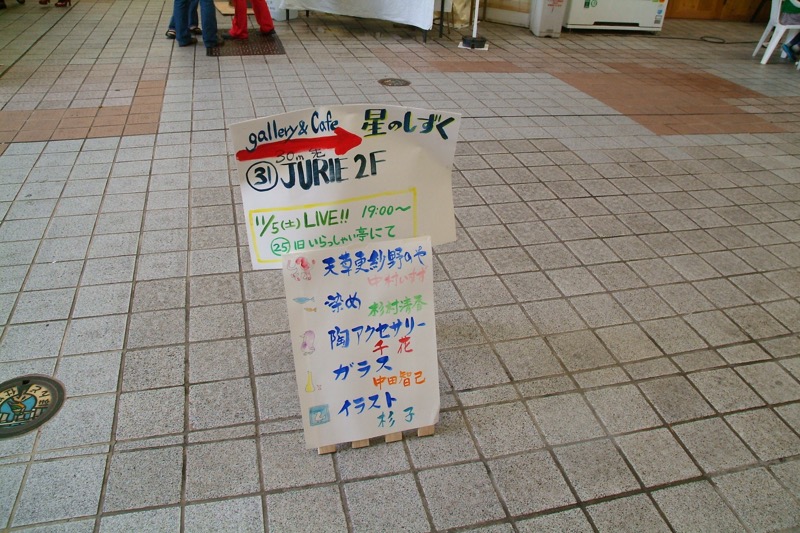 gallery & Cafe 星のしずく
30m 先
㉛ JURIE 2F
11/5(土) LIVE!! 19:00〜
㉕ 旧いらっしゃい亭にて
天草更紗野のや
中村いすず
染め
杉村清春
陶アクセサリー
千花
ガラス
中田智己
イラスト
杉子